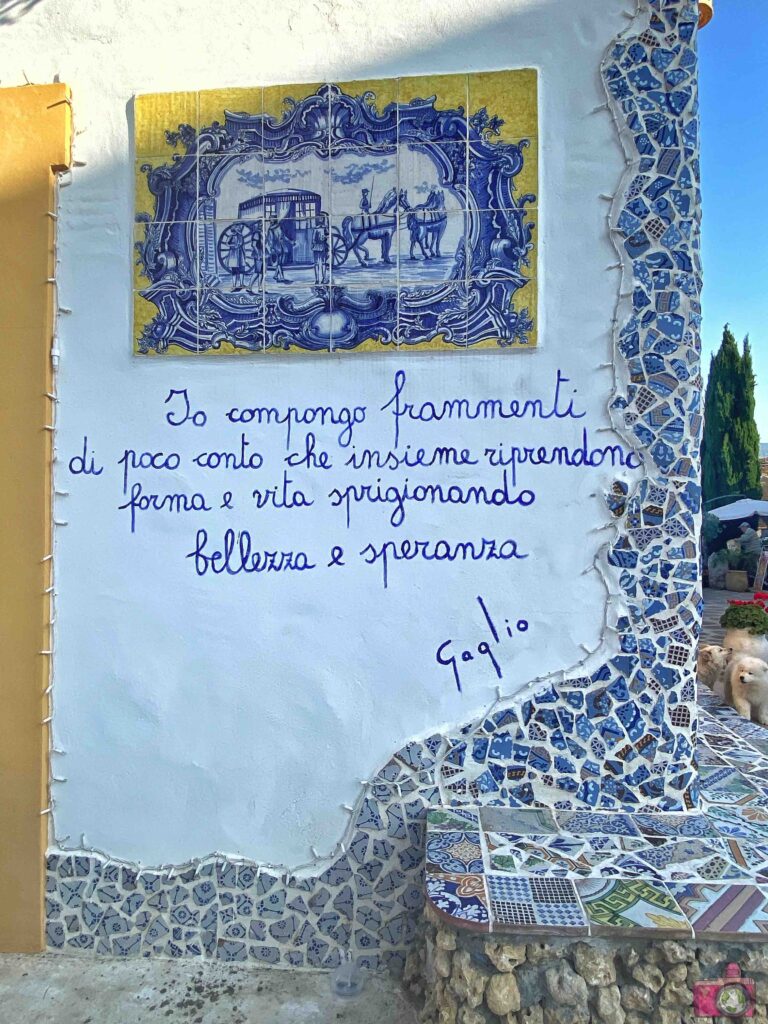 Io compongo frammenti
di poco conto che insieme riprendono
forma e vita sprigionando
bellezza e speranza
Gaglio